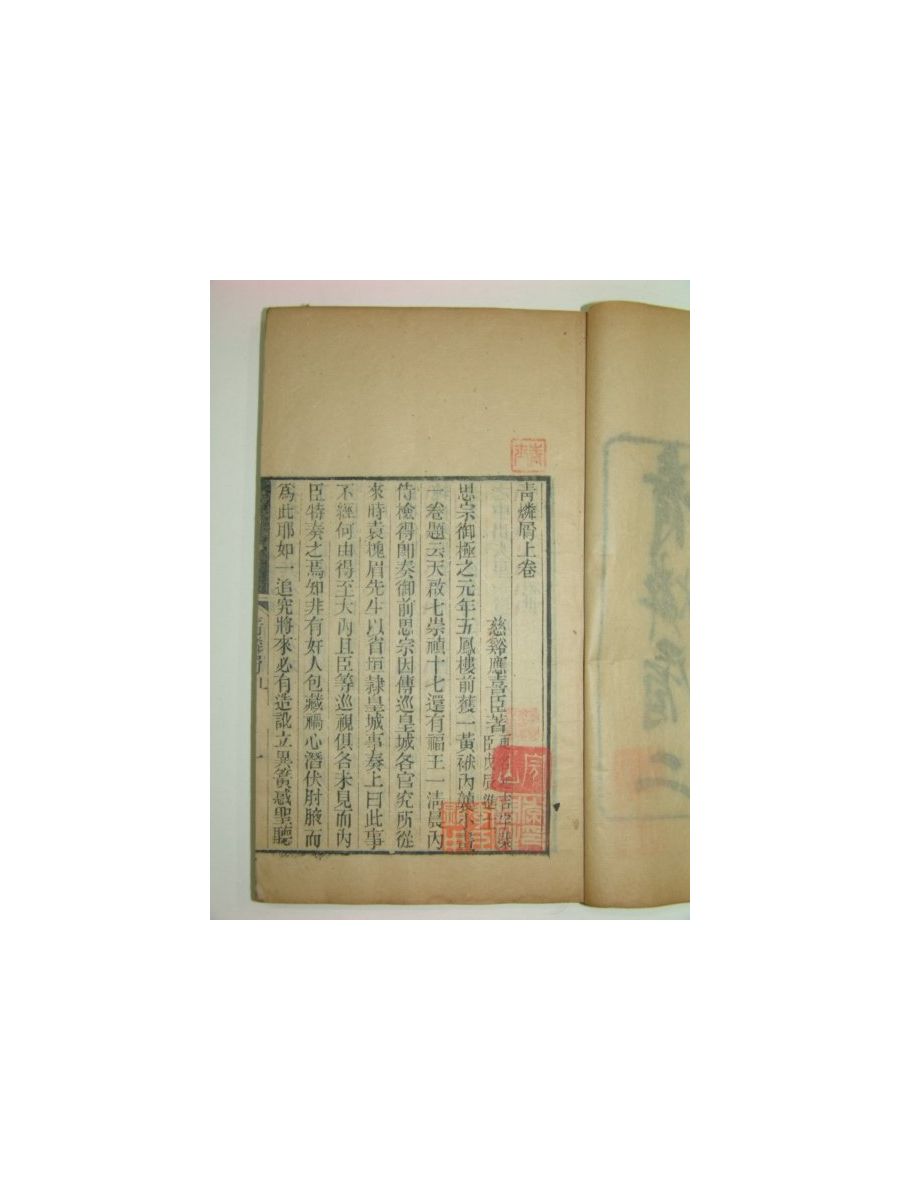 青燐屑上卷
慈谿應喜臣著
思宗御極之元年五鳳樓前獲一黃袱內小書
一卷題云天啟七崇禎十七還有福王一清晨內
侍檢得卽奏御前思宗因傳巡皇城各官究所從
來時袁槐眉先生以省垣隷皇城事奏上曰此事
不經何由得至大內且臣等巡視俱各未見而內
臣特奏之焉知非有奸人包藏禍心潛伏肘腋而
爲此耶如一追究將來必有造訛立異簧惑聖聽